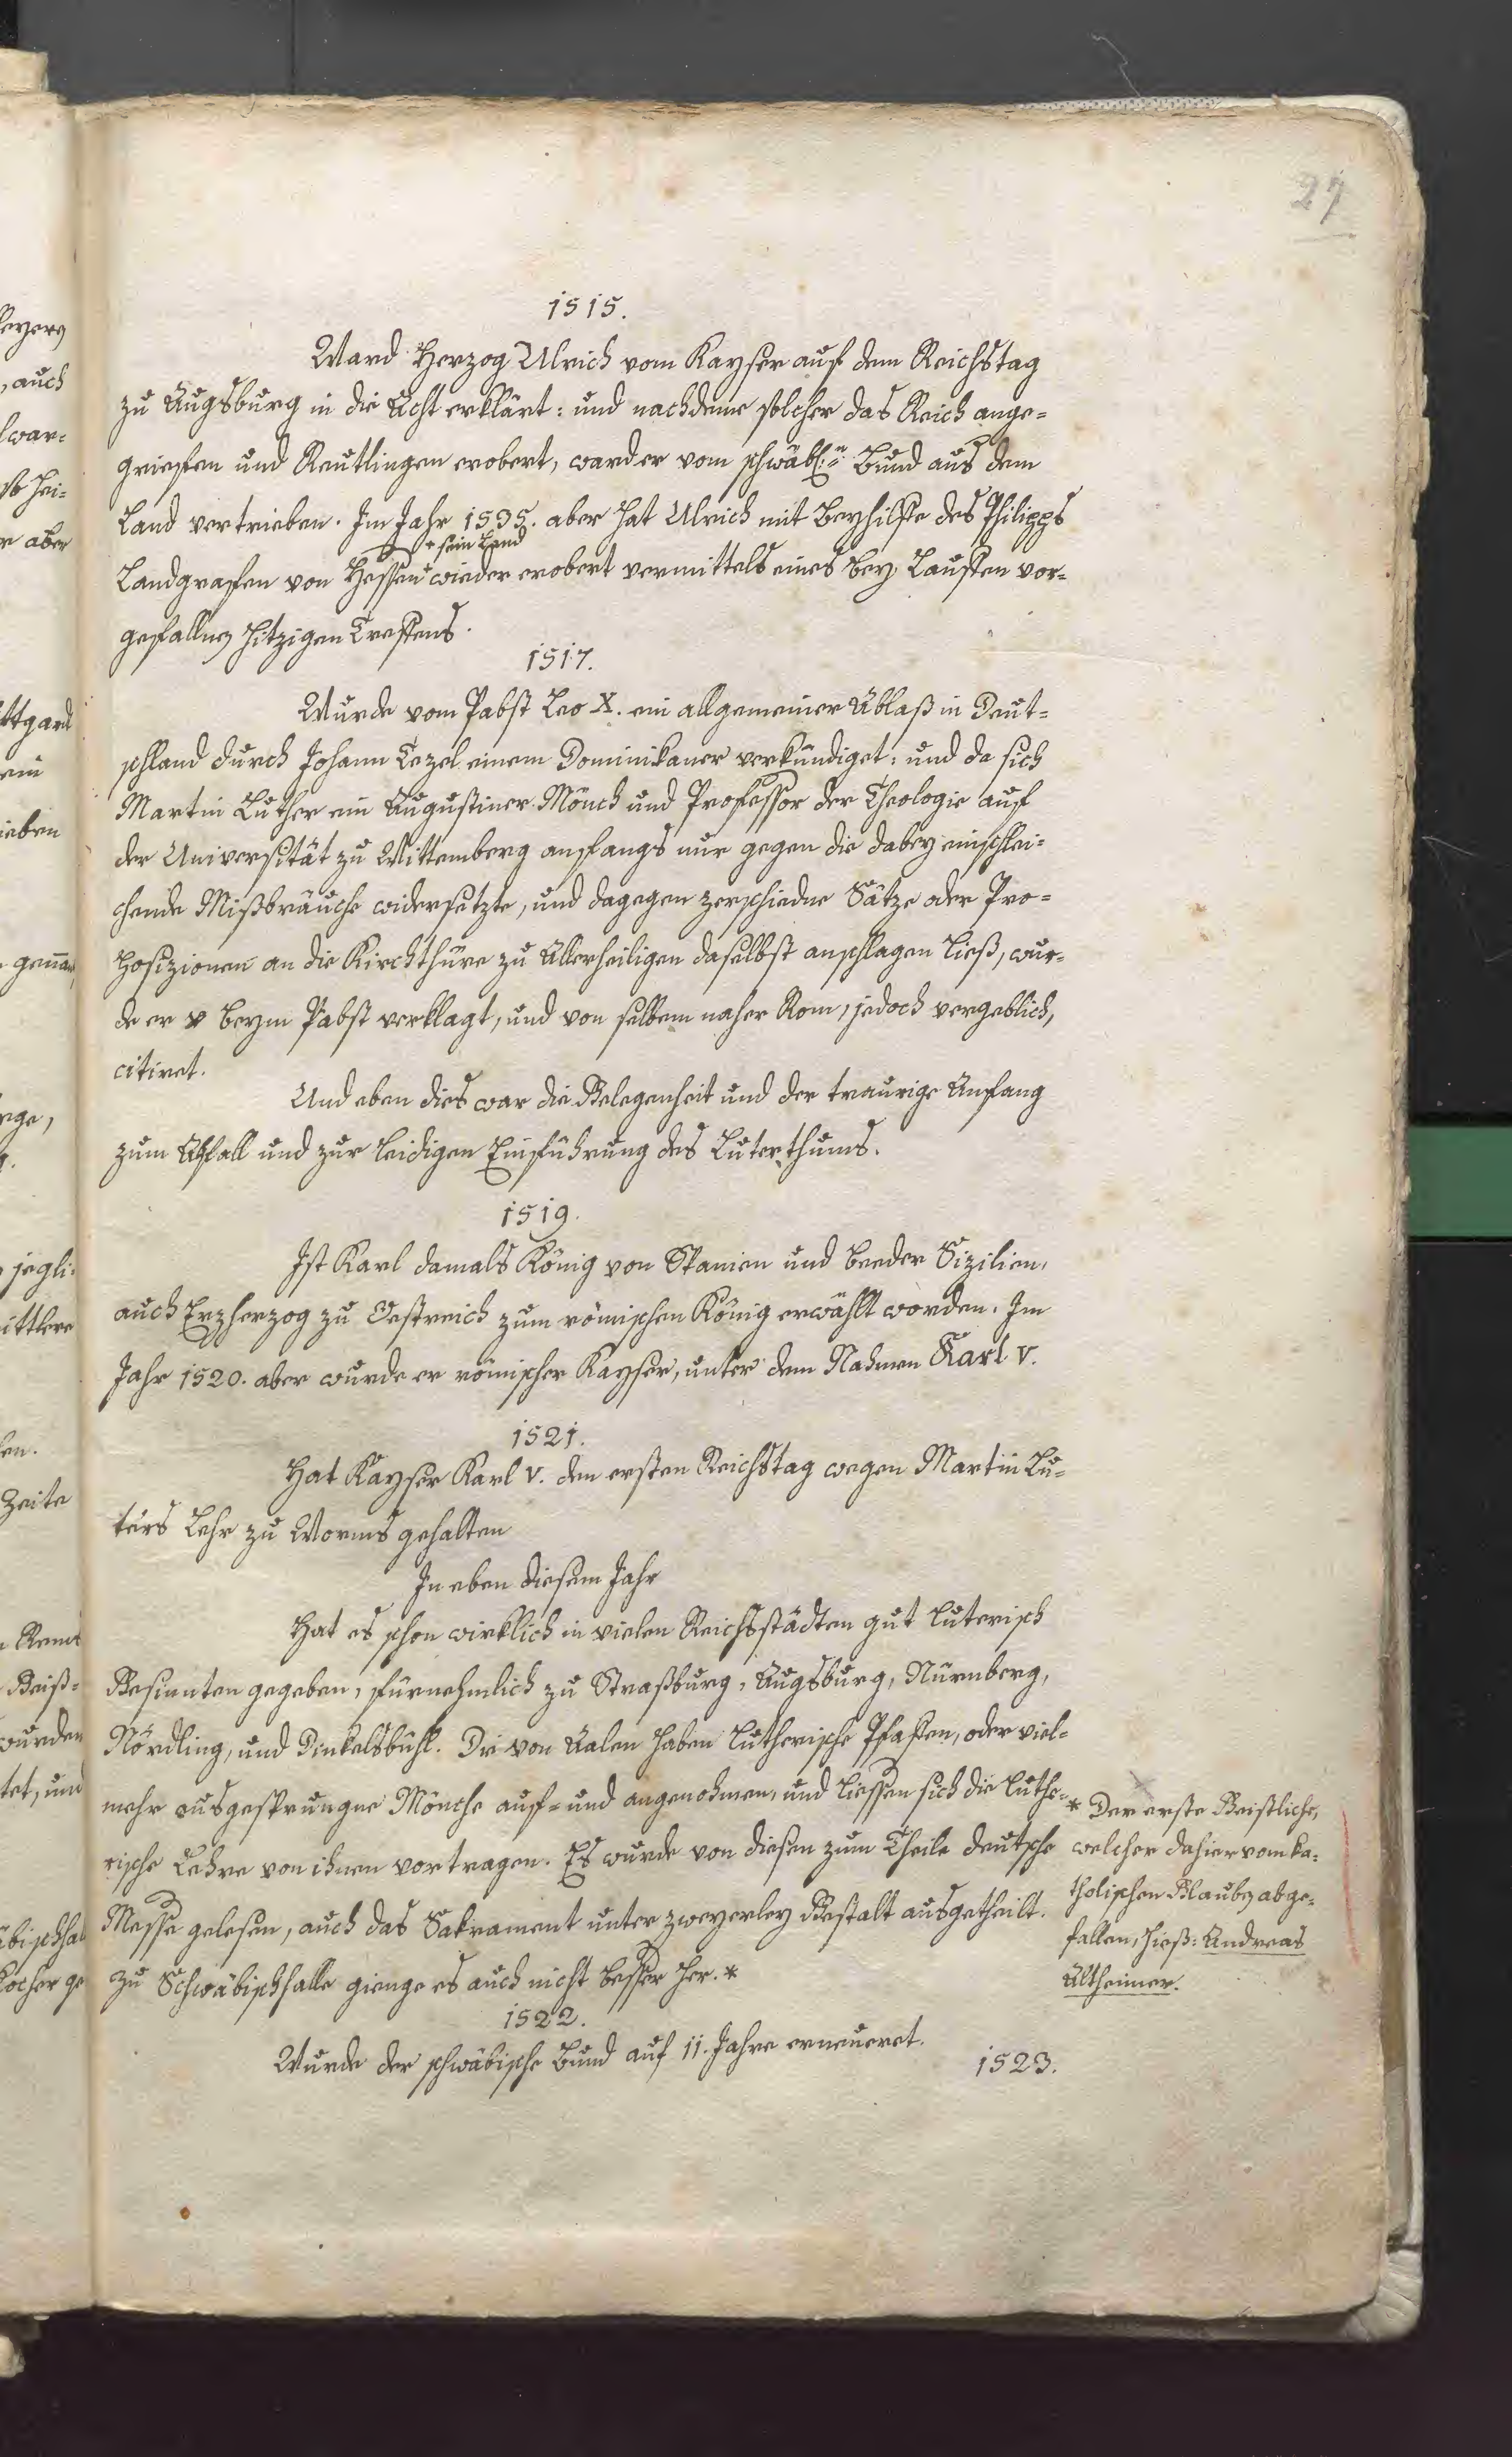 27
1515.
Ward Herzog Ulrich vom Kayser auf dem Reichstag
zu Augsburg in die Acht erklärt: und nachdeme solcher das Reich ange=
griefen und Reutlingen erobert, ward er vom schwäb: Bund aus dem
Land vertrieben. Im Jahr 1535. aber hat Ulrich mit Beyhilffe des Philipps
+ sein Land
Landgrafen von Hessen + wieder erobert vermittels eines bey Lauffen vor=
gefallnen hitzigen Treffens.
1517.
Wurde vom Pabst Leo X. ein allgemeiner Ablaß in Deut=
schland durch Johann Tezel einem Dominikaner verkündiget: und da sich
Martin Luther ein Augustiner Mönch und Professor der Theologie auf
der Universität zu Wittemberg anfangs nur gegen die dabey einschlei=
chende Mißbräuche widersetzte, und dagegen zerschiedne Sätze oder Pro=
posizionen an die Kirchthüre zu Allerheiligen daselbst anschlagen ließ, wur=
de er beym Pabst verklagt, und von selbem naher Rom, jedoch vergeblich,
citiret.
Und eben dies war die Gelegenheit und der traurige Anfang
zum Abfall und zur leidigen Einführung des Luterthums.
1519.
Ist Karl damals König von Spanien und beeder Sizilien,
auch Erzherzog zu Oestreich zum römischen König erwählt worden. Im
Jahr 1520. aber wurde er römischer Kayser, unter dem Nahmen Karl V.
1521.
Hat Kayser Karl V. den ersten Reichstag wegen Martin Lu=
ters Lehr zu Worms gehalten
In eben diesem Jahr
Hat es schon wirklich in vielen Reichsstädten gut luterisch
Gesinnten gegeben, fürnehmlich zu Straßburg, Augsburg, Nürnberg,
Nördling, und Dinkelsbühl. Die von Aalen haben lutherische Pfaffen, oder viel=
mehr ausgesprungne Mönche auf= und angenohmen, und liessen sich die luthe=
rische Lehre von ihnen vortragen. Es wurde von diesen zum Theile deutsche
Messe gelesen, auch das Sakrament unter zweyerley Gestalt ausgetheilt.
Zu Schwäbischhalle gienge es auch nicht besser her. *
* Der erste Geistliche,
welcher dahier vom ka=
tholischen Glauben abge=
fallen, hieß: Andreas
Altheimer.
1522.
Wurde der schwäbische Bund auf 11. Jahre erneueret.
1523.